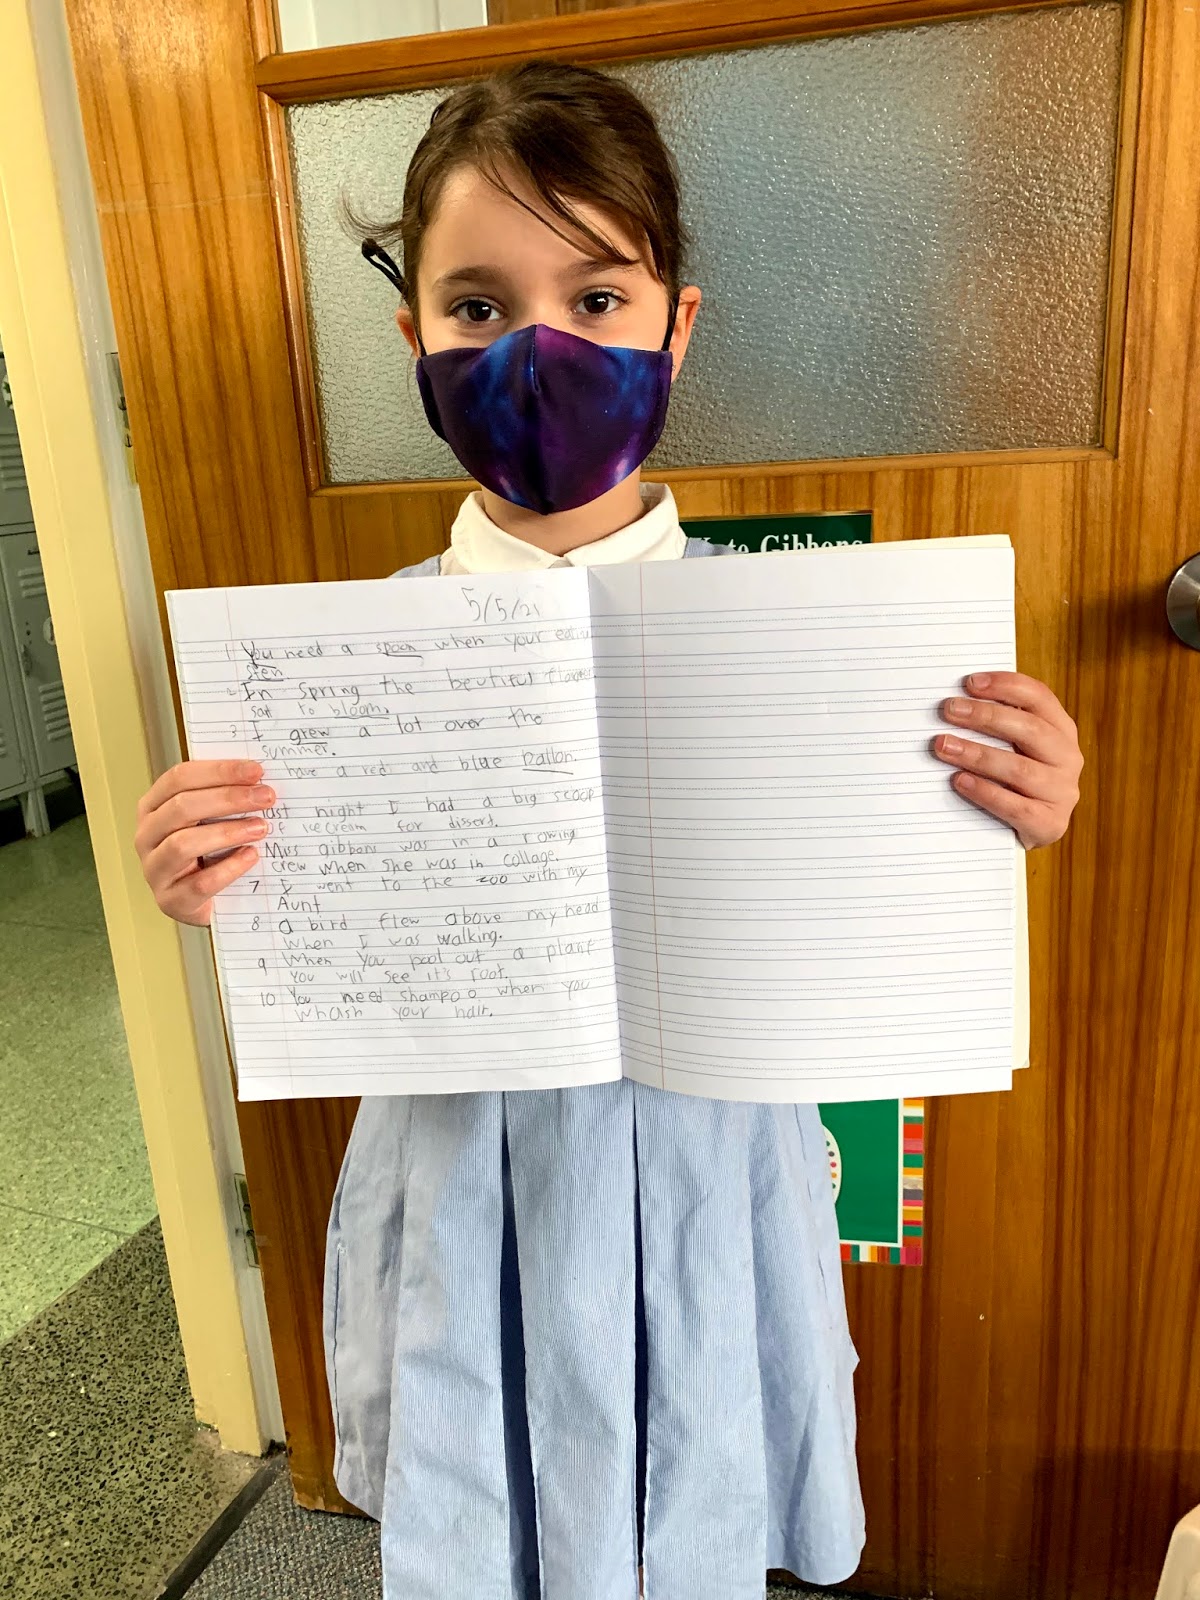 Kate Gibbons
5/5/21
1 You need a spoon when your eatin
stew
2 In spring the beutiful flower
sart to bloom.
3 I grew a lot over the
summer.
have a red and blue ballon.
last night I had a big scoop
of icecream for dissert.
Miss gibbons was in a rowing
crew when she was in collage.
7 I went to the zoo with my
Aunt
8 a bird flew above my head
when I was walking.
9 When you pool out a plant
you will see it's root.
10 You need shampoo when you
whash your hair.